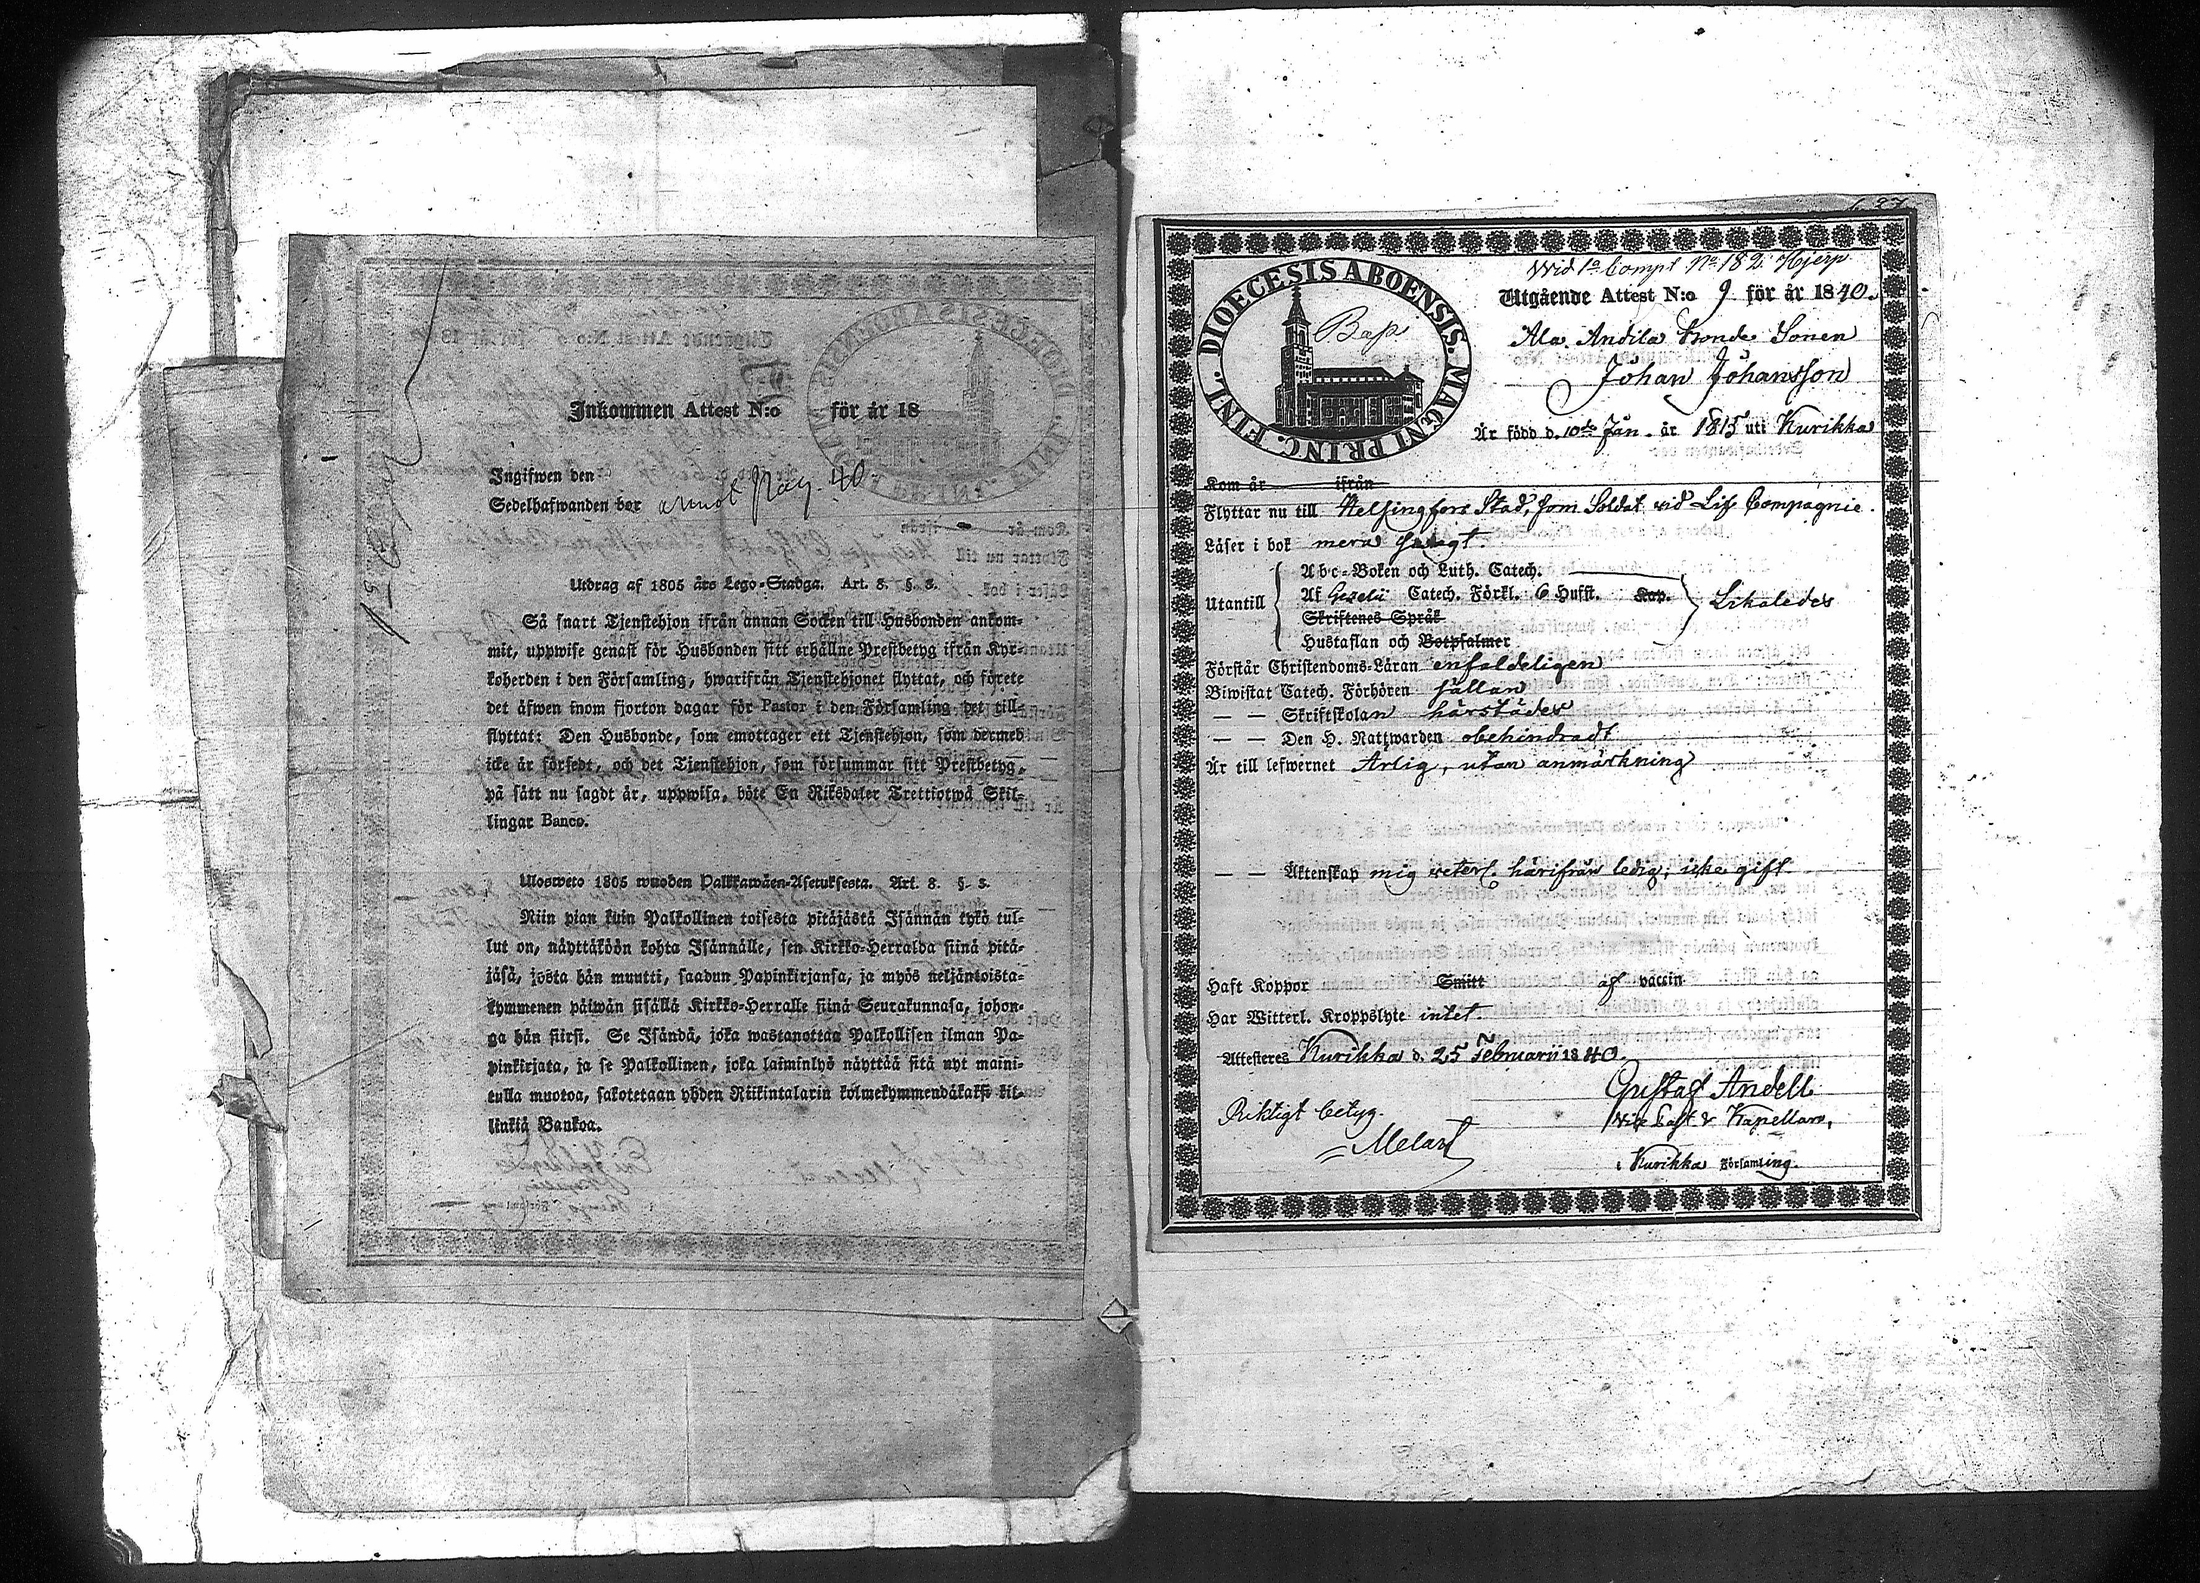 Inkommen Attest N:o för år 18
Ingifwen den
Sedelhafwanden bor
Utdrag af 1805 års Lego-Stadga. Art. 8. §. 3.
Så snart Tjenstehjon ifrån annan Socken till Husbonden ankom-
mit, uppwise genast för Husbonden sitt erhållne Prestbetyg ifrån Kyr-
koherden i den Församling, hwarifrån Tjenstehjonet flyttat, och förete
det äfwen inom fjorton dagar för Pastor i den Församling det till-
flyttat: Den Husbonde, som emottager ett Tjenstehjon, som dermed
icke är försedt, och det Tjenstehjon, som försummar sitt Prestbetyg,
på sätt nu sagdt är, uppwisa, böte En Riksdaler Trettiotwå Skil-
lingar Banco.
Ulosweto 1805 wuoden Palkkawäen-Asetuksesta. Art. 8. §. 3.
Niin pian kuin Palkollinen toisesta pitäjästä Isännän tykö tul-
lut on, näyttäköön kohta Isännälle, sen Kirkko-Herralda siinä pitä-
jäsä, josta hän muutti, saadun Papinkirjansa, ja myös neljäntoista-
kymmenen päiwän sisällä Kirkko-Herralle siinä Seurakunnasa, johon-
ga hän siirsi. Se Isändä, joka wastanottaa Palkollisen ilman Pa-
pinkirjata, ja se Palkollinen, joka laiminlyö näyttää sitä nyt maini-
tulla muotoa, sakotetaan yhden Riikintalarin kolmekymmendäkaksi kil-
linkiä Bankoa.
DIOECESIS ABOENSIS. MAGNI PRINC. FINL.
Bap
Wid 1a Compt No 182 Hjerp
Utgående Attest N:o 9 för år 1840.
Ala Andila Bonde Sonen
Johan Johansson
Är född d. 10de Jan. år 1815 uti Kurikka
Kom år ifrån
Flyttar nu till Helsingfors Stad, som Soldat vid Lif Compagnie.
Läser i bok mera svagt.
Utantill
Abc-Boken och Luth. Catech.
Af Gezelii Catech. Förkl. 6 Hufst. Kap.
Skriftenes Språk
Hustaflan och Botpsalmer
Likaledes
Förstår Christendoms-Läran enfaldeligen
Biwistat Catech. Förhören sällan
— — Skriftskolan härstädes
— — Den H. Nattwarden obehindradt
Är till lefwernet Ärlig, utan anmärkning
— — Äktenskap mig veterl. härifrån ledig; icke gift.
Haft Koppor Smitt af vaccin
Har Witterl. Kroppslyte intet.
Attesteres Kurikka d. 25 Februarii 1840.
Gustaf Andell
Vice Past. & Kapellan,
i Kurikka Församling.
Riktigt betyg.
Melart